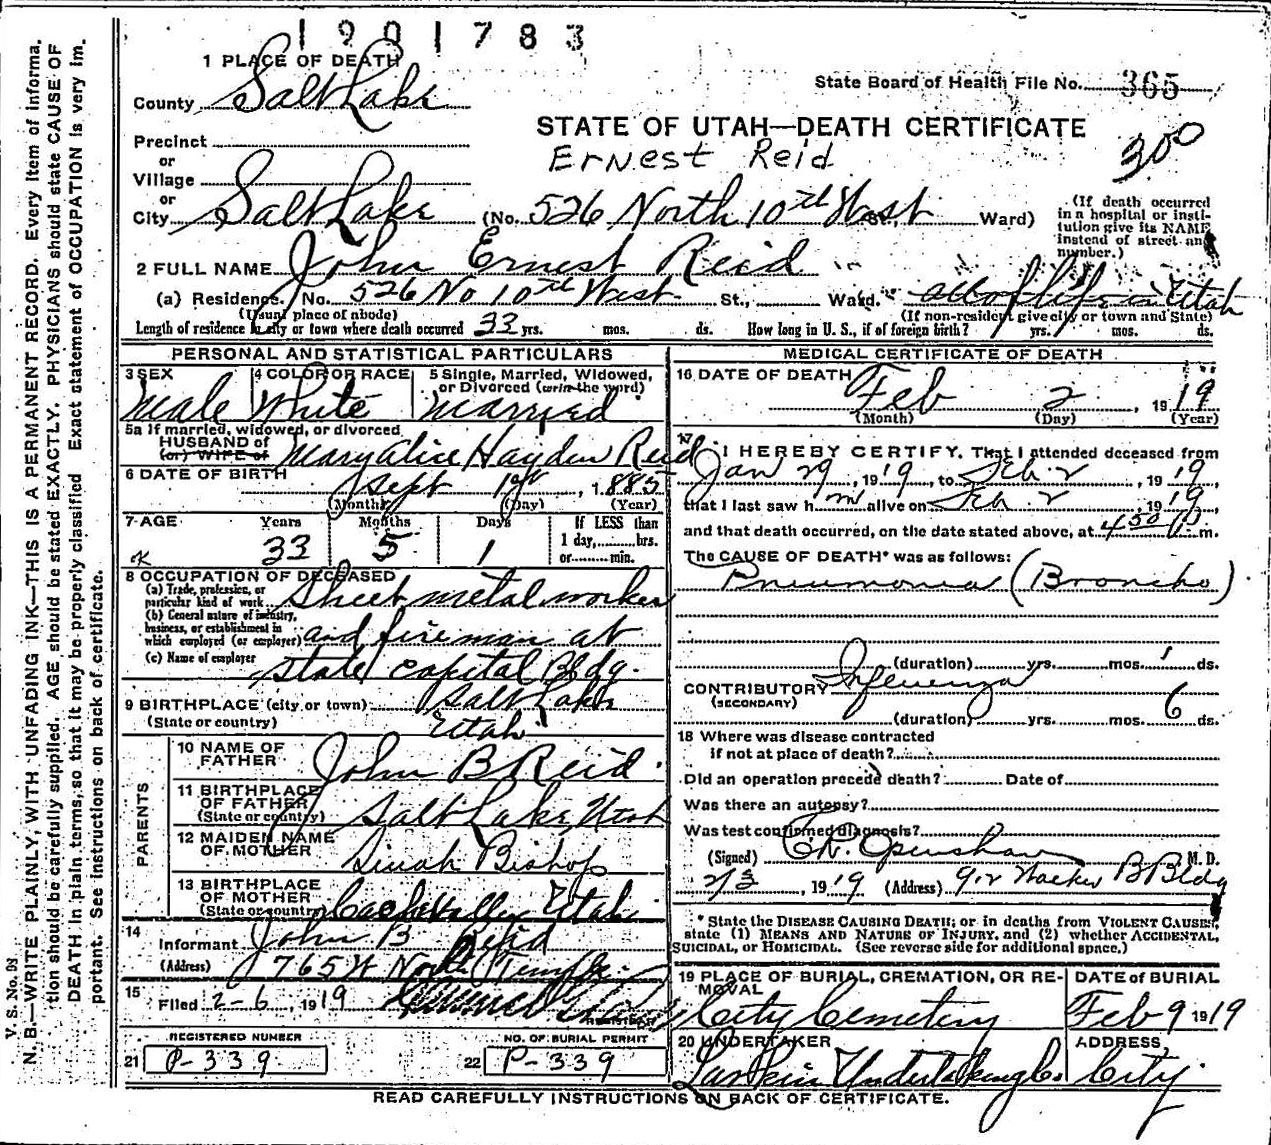 1901783
1 PLACE OF DEATH
State Board of Health File No. 365
County Salt Lake
STATE OF UTAH—DEATH CERTIFICATE
Precinct
Ernest Reid
300
or
Village
or
City Salt Lake (No. 526 North 10th West St., Ward)
(If death occurred in a hospital or insti-
tution give its NAME
instead of street and
number.)
2 FULL NAME John Ernest Reid
(a) Residence. No. 526 No 10th West St., Ward. all of life in Utah
(Usual place of abode) (If non-resident give city or town and State)
Length of residence in city or town where death occurred 33 yrs. mos. ds. How long in U. S., if of foreign birth? yrs. mos. ds.
PERSONAL AND STATISTICAL PARTICULARS
3 SEX 4 COLOR OR RACE 5 Single, Married, Widowed,
or Divorced (write the word)
Male White Married
5a If married, widowed, or divorced
HUSBAND of
(or) WIFE of Mary Alice Hayden Reid
6 DATE OF BIRTH Sept 1st, 1885
(Month) (Day) (Year)
7 AGE Years Months Days If LESS than
1 day, hrs.
or min.
OK 33 5 1
8 OCCUPATION OF DECEASED
(a) Trade, profession, or
particular kind of work Sheet metal worker
(b) General nature of industry,
business, or establishment in
which employed (or employer) and fireman at
(c) Name of employer state capital Bldg.
9 BIRTHPLACE (city or town) Salt Lake
(State or country) Utah
PARENTS
10 NAME OF
FATHER John B Reid
11 BIRTHPLACE
OF FATHER
(State or country) Salt Lake, Utah
12 MAIDEN NAME
OF MOTHER Sinah Bishop
13 BIRTHPLACE
OF MOTHER
(State or country) Cache Valley Utah
14
Informant John B Reid
(Address) 765 W North Temple
15
Filed 2-6, 1919
REGISTRAR
REGISTERED NUMBER
21 P-339
NO. OF BURIAL PERMIT
22 P-339
MEDICAL CERTIFICATE OF DEATH
16 DATE OF DEATH Feb 2, 1919
(Month) (Day) (Year)
17 I HEREBY CERTIFY, That I attended deceased from
Jan 29, 1919, to Feb 2, 1919,
that I last saw h m alive on Feb 2, 1919,
and that death occurred, on the date stated above, at 4:50 P m.
The CAUSE OF DEATH* was as follows:
Pneumonia (Broncho)
(duration) yrs. mos. ds.
CONTRIBUTORY Influenza
(SECONDARY)
(duration) yrs. mos. 6 ds.
18 Where was disease contracted
if not at place of death?
Did an operation precede death? Date of
Was there an autopsy?
Was test confirmed diagnosis?
(Signed) Openshaw M. D.
2/3, 1919 (Address) 912 Walker B Bldg
* State the DISEASE CAUSING DEATH; or in deaths from VIOLENT CAUSES,
state (1) MEANS AND NATURE OF INJURY, and (2) whether ACCIDENTAL,
SUICIDAL, or HOMICIDAL. (See reverse side for additional space.)
19 PLACE OF BURIAL, CREMATION, OR RE-
MOVAL
City Cemetery
DATE of BURIAL
Feb 9 1919
20 UNDERTAKER
Larkin Undertaking Co.
ADDRESS
City
READ CAREFULLY INSTRUCTIONS ON BACK OF CERTIFICATE.
V. S. No. 98
N. B.—WRITE PLAINLY, WITH UNFADING INK—THIS IS A PERMANENT RECORD. Every item of informa-
tion should be carefully supplied. AGE should be stated EXACTLY. PHYSICIANS should state CAUSE OF
DEATH in plain terms, so that it may be properly classified. Exact statement of OCCUPATION is very im-
portant. See instructions on back of certificate.